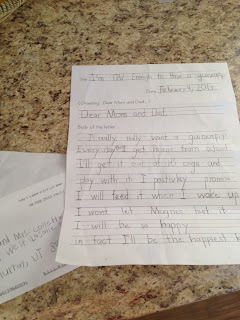 I'm Old Enough to Have a guineapig
Date February 4, 2013
(Greeting: Dear Mom and Dad,
Dear Mom and Dad,
Body of the letter:
I really, really want a guineapig!
Every day I get home from school
I'll get it out of it's cage and
play with it. I positivley promise
I will feed it when I wake up
I wont let Magnus eat it.
I will be so happy
in fact I'll be the happiest k
and Mrs.
VT